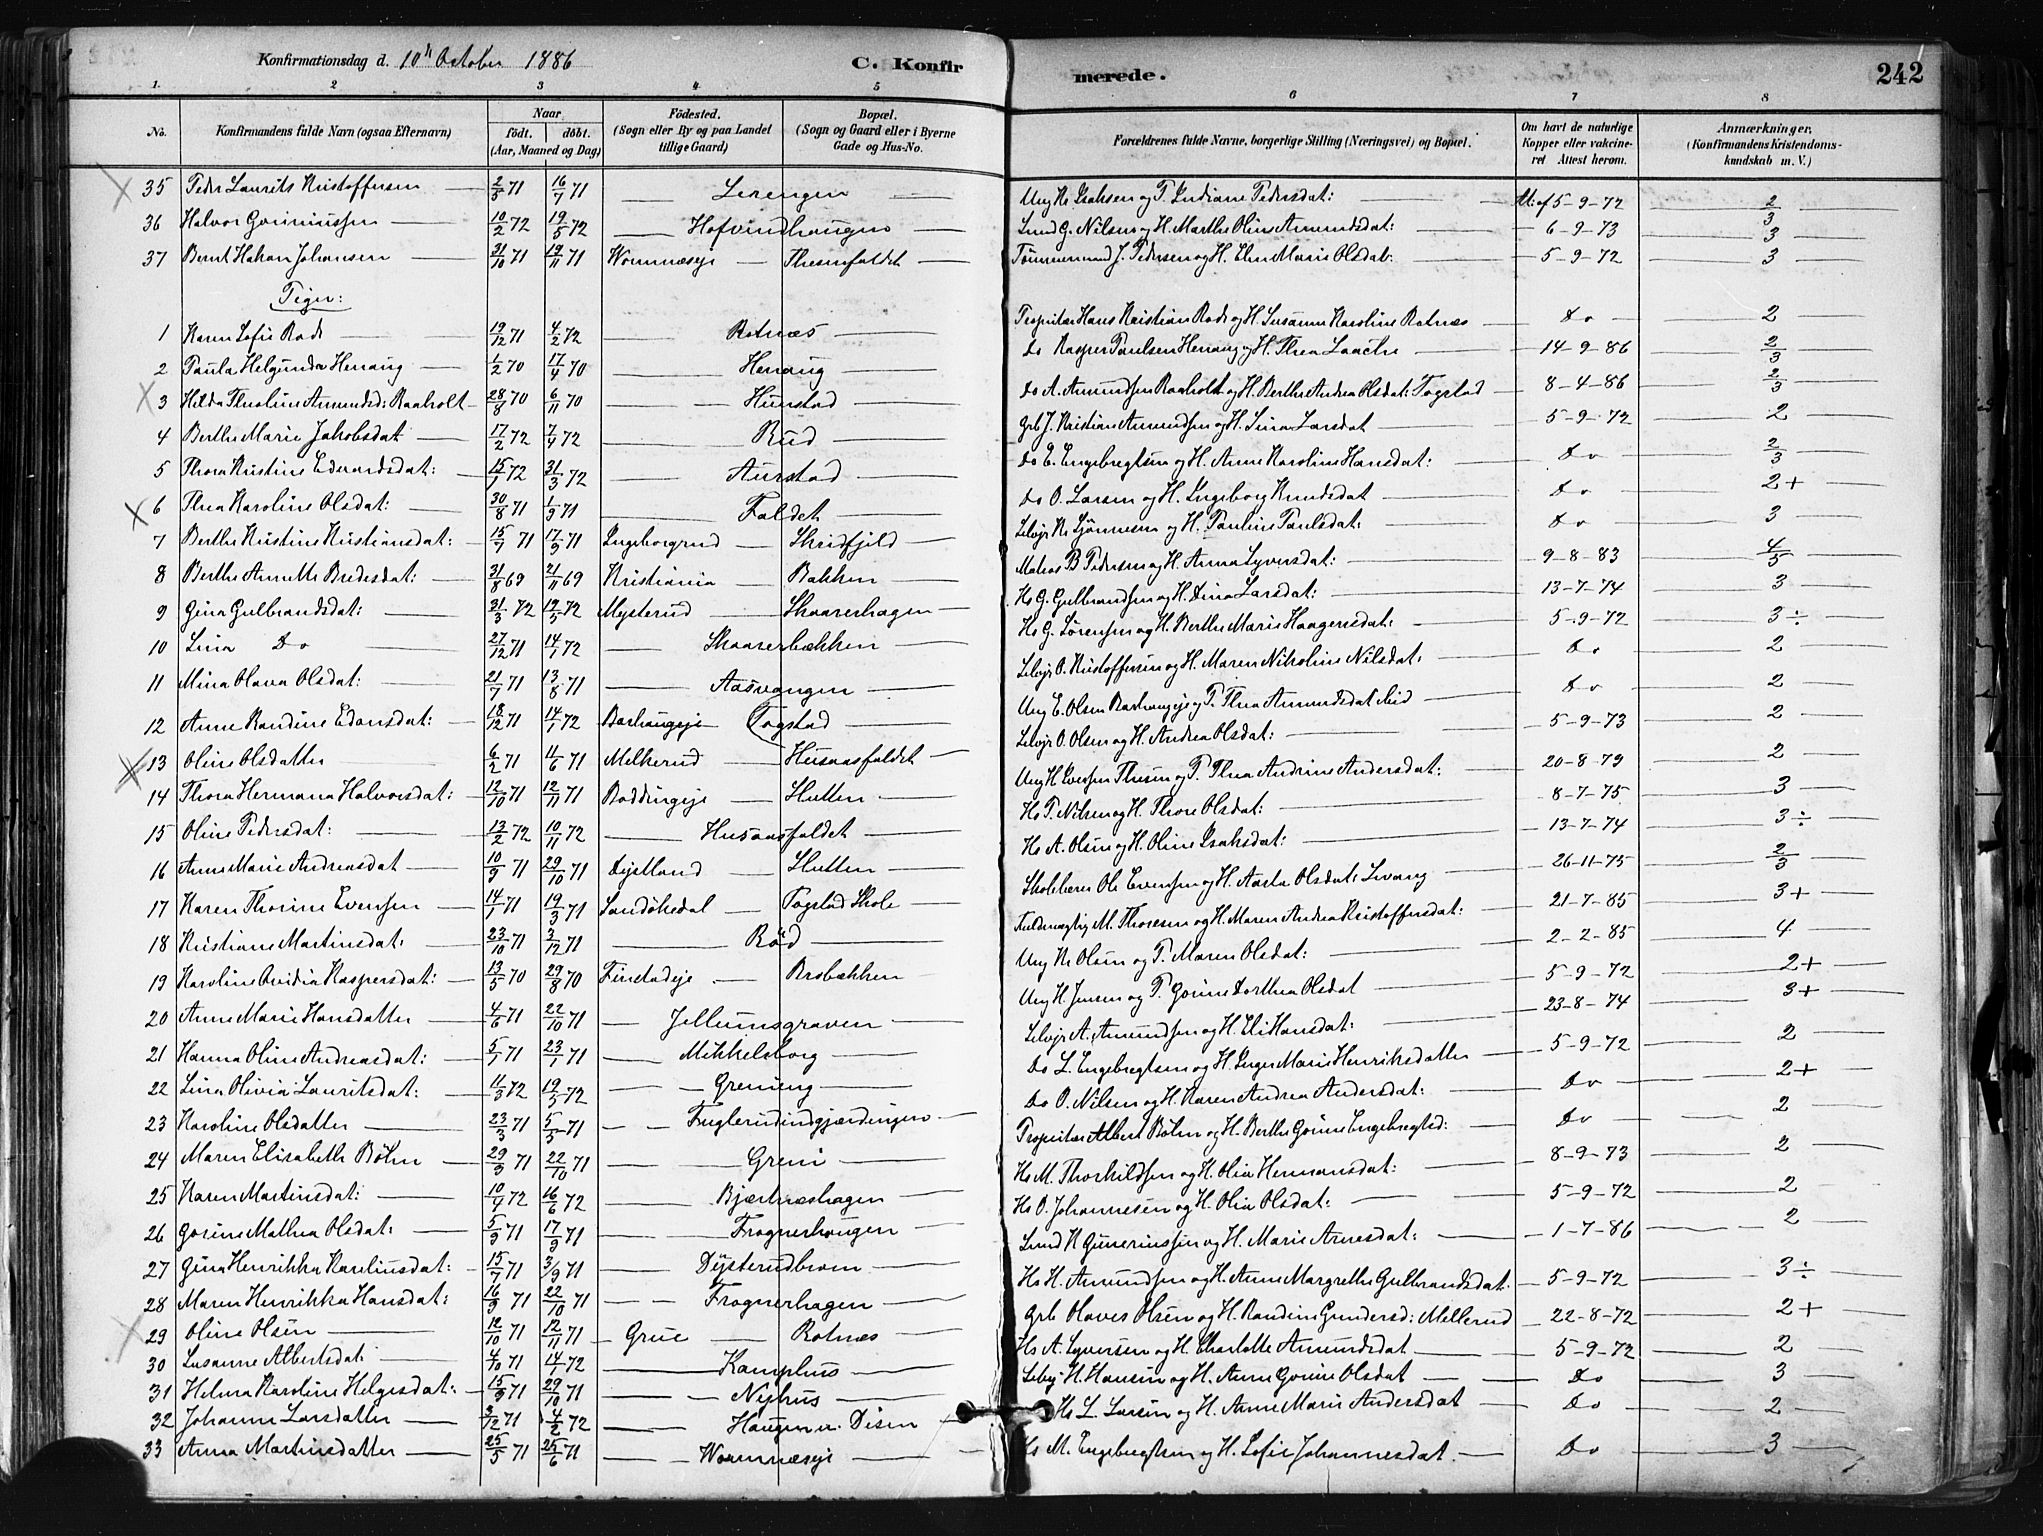 Konfirmationsdag d. 10de October 1886
C. Konfirmerede.
242
1. 2 3 4 5 6 7 8
No. Konfirmandens fulde Navn (ogsaa Efternavn) Naar født. døbt. (Aar, Maaned og Dag) Fødested. (Sogn eller By og paa Landet tillige Gaard) Bopæl. (Sogn og Gaard eller i Byerne Gade og Hus-No. Forældrenes fulde Navne, borgerlige Stilling (Næringsvei) og Bopæl. Om havt de naturlige Kopper eller vakcineret Attest herom. Anmærkninger, (Konfirmandens Kristendomskundskab m. V.)
35 Peder Laurits Kristoffersen 2/5 71 16/7 71 Lerengen Ung K. Isaksen og P. Indiane Pedersdat: At: af 5-9-72 2/3
36 Halvor Gunniussen 10/2 72 19/5 72 Hofvindhaugen Lmd G. Nilsen og H. Marthe Oline Amundsdat: 6-9-73 3
37 Bernt Hakon Johansen 31/10 71 19/11 71 Wormnæseje Thesenfaldet Tømmermand J. Pedersen og H. Elen Marie Olsdat: 5-9-72 3
Piger:
1 Karen Sofie Rode 19/12 71 4/2 72 Rotnæs Proprietær Hans Kristian Rode og H. Susanne Karoline Rotnæs Do 2
2 Paula Helgunda Henaug 1/2 70 17/4 70 Henaug Do Kasper Paulsen Henaug og H. Thea Laache 14-9-86 2/3
3 Hilda Theoline Amundsd: Raaholt 28/8 70 6/11 70 Hunstad Do A. Amundsen Raaholt og H. Berthe Andrea Olsdat: Togstad 8-4-86 2/3
4 Berthe Marie Jakobsdat 17/2 72 7/4 72 Rud Grb J. Kristian Amundsen og H. Lina Larsdat 5-9-72 2
5 Thora Kristine Edvardsdat: 15/1 72 31/3 72 Aurstad Do E. Engebregtsen og H. Anne Karoline Hansdat: Do 2/3
6 Thea Karoline Olsdat: 30/8 71 1/9 71 Faldet Do O. Larsen og H. Ingeborg Knudsdat Do 2+
7 Berthe Kristine Kristiansdat: 15/7 71 17/9 71 Ingeborgrud Skridfjeld Selvejr K. Sjønnesen og H. Pauline Paulsdat: Do 3
8 Berthe Annette Bredesdat: 31/8 69 21/11 69 Kristiania Bakken Matros B Pedersen og H. Anna Syversdat: 9-8-83 4/5
9 Gina Gulbrandsdat: 21/3 72 19/5 72 Mysterud Skaarerhagen Hs G. Gulbrandsen og H. Dina Larsdat: 13-7-74 3
10 Lina Do 27/12 71 14/1 72 Skaarerbækken Hs G. Sørensen og H. Berthe Marie Haagensdat: 5-9-72 3÷
11 Mina Olava Olsdat: 21/7 71 13/8 71 Aasvangen Selvejr O. Kristoffersen og H. Maren Nikoline Nilsdat: Do 2
12 Anne Randine Edansdat: 18/12 71 14/1 72 Barhaugeje Togstad Ung E. Olsen Barhaugeje og P. Thea Amundsdat ibid Do 2
13 Oline Olsdatter 6/2 71 11/6 71 Melkerud Husaasfaldet Selvejr O. Olsen og H. Andrea Olsdat: 5-9-73 2
14 Thora Hermana Halvorsdat: 12/10 71 12/11 71 Boddingeje Slutten Ung H Evensen Thesen og P. Thea Andrine Andersdat: 20-8-79 2
15 Oline Pedersdat: 13/2 72 10/11 72 Husaasfaldet Hs P. Nilsen og H. Thore Olsdat: 8-7-75 3
16 Anne Marie Andreasdat 10/9 71 29/10 71 Dystland Slutten Hs A. Olsen og H. Oline Isaksdat: 13-7-74 3÷
17 Karen Thorine Evensen 14/1 71 19/3 71 Sandökedal Togstad Skole Skolelærer Ole Evensen og H. Aasta Olsdat: Levang 26-11-75 2/3
18 Kristiane Martinsdat: 23/10 71 3/12 71 Röd Fuldmægtig M. Thoresen og H. Maren Andrea Kristoffersdat: 21-7-85 3+
19 Karoline Ovidia Kaspersdat: 13/5 70 29/8 70 Finstadeje Brobækken Ung K. Olsen og P. Maren Olsdat: 2-2-85 4
20 Anne Marie Hansdatter 4/6 71 22/10 71 Jellumsgraven Ung H. Jensen og P. Gorine Dorthea Olsdat 5-9-72 2+
21 Hanna Oline Andreasdat: 5/1 71 23/1 71 Mikkelsborg Selvejr A. Amundsen og H. Eli Hansdat: 23-8-74 3+
22 Lina Olivia Lauritsdat: 11/3 72 19/5 72 Grening Do L. Engebregtsen og H. Inger Marie Henriksdatter 5-9-72 2
23 Karoline Olsdatter 23/3 71 5/5 71 Fuglerudindgjærdingen Do O. Nilsen og H. Karen Andrea Andersdat: Do 2+
24 Maren Elisabeth Böhn 29/9 71 22/10 71 Greni Proprietær Albert Böhn og H. Berthe Gorine Engebregtsd: Do 2
25 Karen Martinsdat: 10/4 72 16/6 72 Bjærknæshagen Hs M. Thorkildsen og H. Olia Hermansdat: 8-9-73 2
26 Gorine Mathea Olsdat: 5/9 71 17/9 71 Frognerhaugen Hs O. Johannesen og H. Olia Olsdat: 5-9-72 2
27 Gina Henrikka Kareliusdat: 15/7 71 3/9 71 Dysterudbroen Lmd K Gunneriussen og H. Marie Arnesdat: 1-7-86 2
28 Maren Henrikka Hansdat: 16/9 71 22/10 71 Frognerhagen Hs H. Amundsen og H. Anne Margrethe Gulbrandsdat 5-9-72 3÷
29 Oline Olsen 12/10 71 12/11 71 Grue Rotnæs Grb Olaves Olsen og H. Randine Gundersd: Mellerud 22-8-72 2+
30 Susanne Albertsdat: 4/10 71 14/1 72 Kamphus Hs A. Syversen og H. Charlotte Amundsdat 5-9-72 2
31 Helma Karoline Helgesdat: 15/9 71 29/10 71 Nyhus Selvej. H. Hansen og H. Anne Gorine Olsdat Do 3
32 Johanne Larsdatter 3/12 71 4/2 72 Haugen u. Disen Hs L. Larsen og H. Anne Marie Andersdat Do 2
33 Anna Martinsdatter 25/5 71 25/6 71 Wormnæseje Hs M. Engebregtsen og H. Sofie Johannesdat Do 3